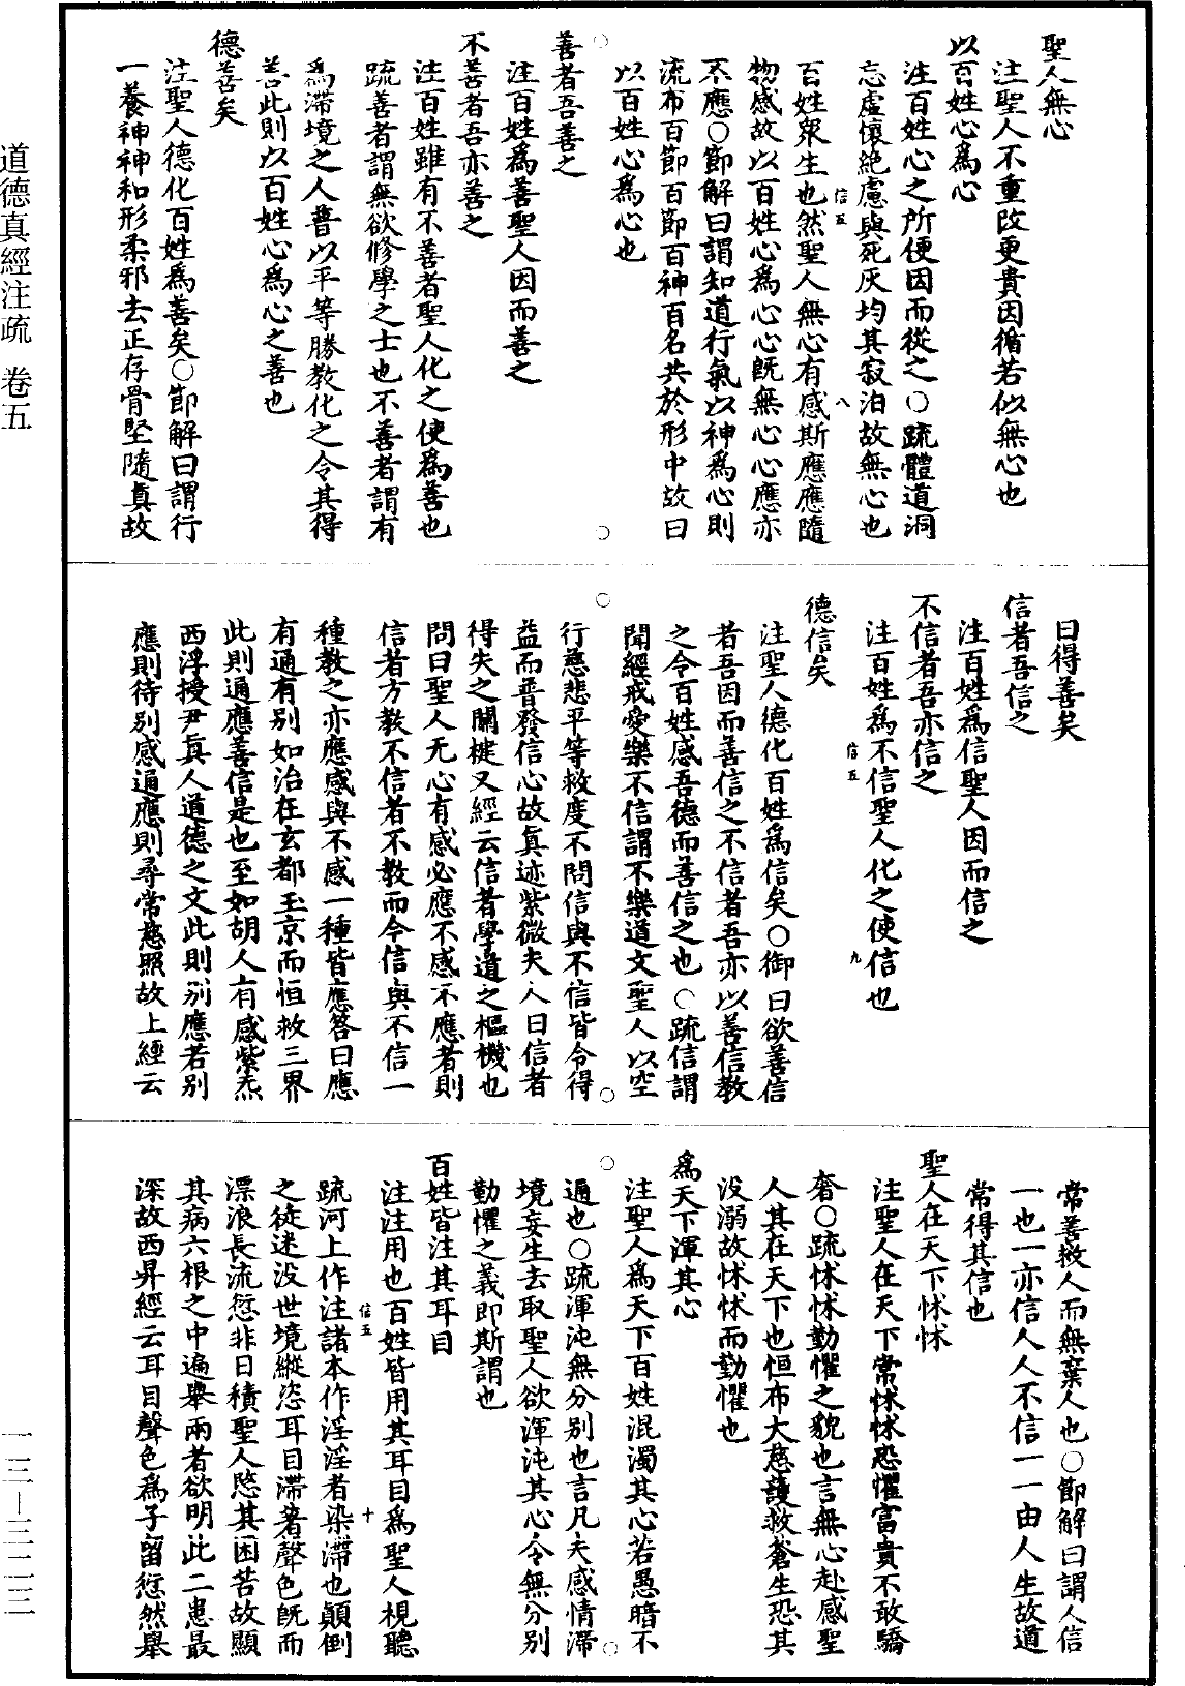 道德真經注疏　卷五
聖人無心
注聖人不重改更貴因循若似無心也
以百姓心為心
注百姓心之所便因而從之○疏體道洞
忘虛懷絕慮與死灰均其寂泊故無心也
信五　八
百姓眾生也然聖人無心有感斯應應隨
物感故以百姓心為心心既無心心應亦
不應○節解曰謂知道行氣以神為心則
流布百節百節百神百名共於形中故曰
以百姓心為心也
善者吾善之
注百姓為善聖人因而善之
不善者吾亦善之
注百姓雖有不善者聖人化之使為善也
疏善者謂無欲修學之士也不善者謂有
為滯境之人普以平等勝教化之令其得
善此則以百姓心為心之善也
德善矣
注聖人德化百姓為善矣○節解曰謂行
一養神神和形柔邪去正存骨堅隨真故
曰得善矣
信者吾信之
注百姓為信聖人因而信之
不信者吾亦信之
注百姓為不信聖人化之使信也
信五　九
德信矣
注聖人德化百姓為信矣○御曰欲善信
者吾因而善信之不信者吾亦以善信教
之令百姓感吾德而善信之也○疏信謂
聞經戒愛樂不信謂不樂道文聖人以空
行慈悲平等救度不問信與不信皆令得
益而普發信心故真迹紫微夫人曰信者
得失之關楗又經云信者學道之樞機也
問曰聖人无心有感必應不感不應者則
信者方教不信者不教而今信與不信一
種教之亦應感與不感一種皆應答曰應
有通有別如治在玄都玉京而恒救三界
此則通應善信是也至如胡人有感紫炁
西浮授尹真人道德之文此則別應若別
應則待別感通應則尋常慈照故上經云
常善救人而無棄人也○節解曰謂人信
一也一亦信人人不信一一由人生故道
常得其信也
聖人在天下怵怵
注聖人在天下常怵怵恐懼富貴不敢驕
奢○疏怵怵勤懼之貌也言無心赴感聖
人其在天下也恒布大慈護救蒼生恐其
沒溺故怵怵而勤懼也
為天下渾其心
注聖人為天下百姓混濁其心若愚暗不
通也○疏渾沌無分別也言凡夫感情滯
境妄生去取聖人欲渾沌其心令無分別
勤懼之義即斯謂也
百姓皆注其耳目
注注用也百姓皆用其耳目為聖人視聽
信五　十
疏河上作注諸本作淫淫者染滯也顛倒
之徒迷沒世境縱恣耳目滯著聲色既而
漂浪長流愆非日積聖人愍其困苦故顯
其病六根之中遍舉兩者欲明此二患最
深故西昇經云耳目聲色為子留愆然舉
一三—三二三